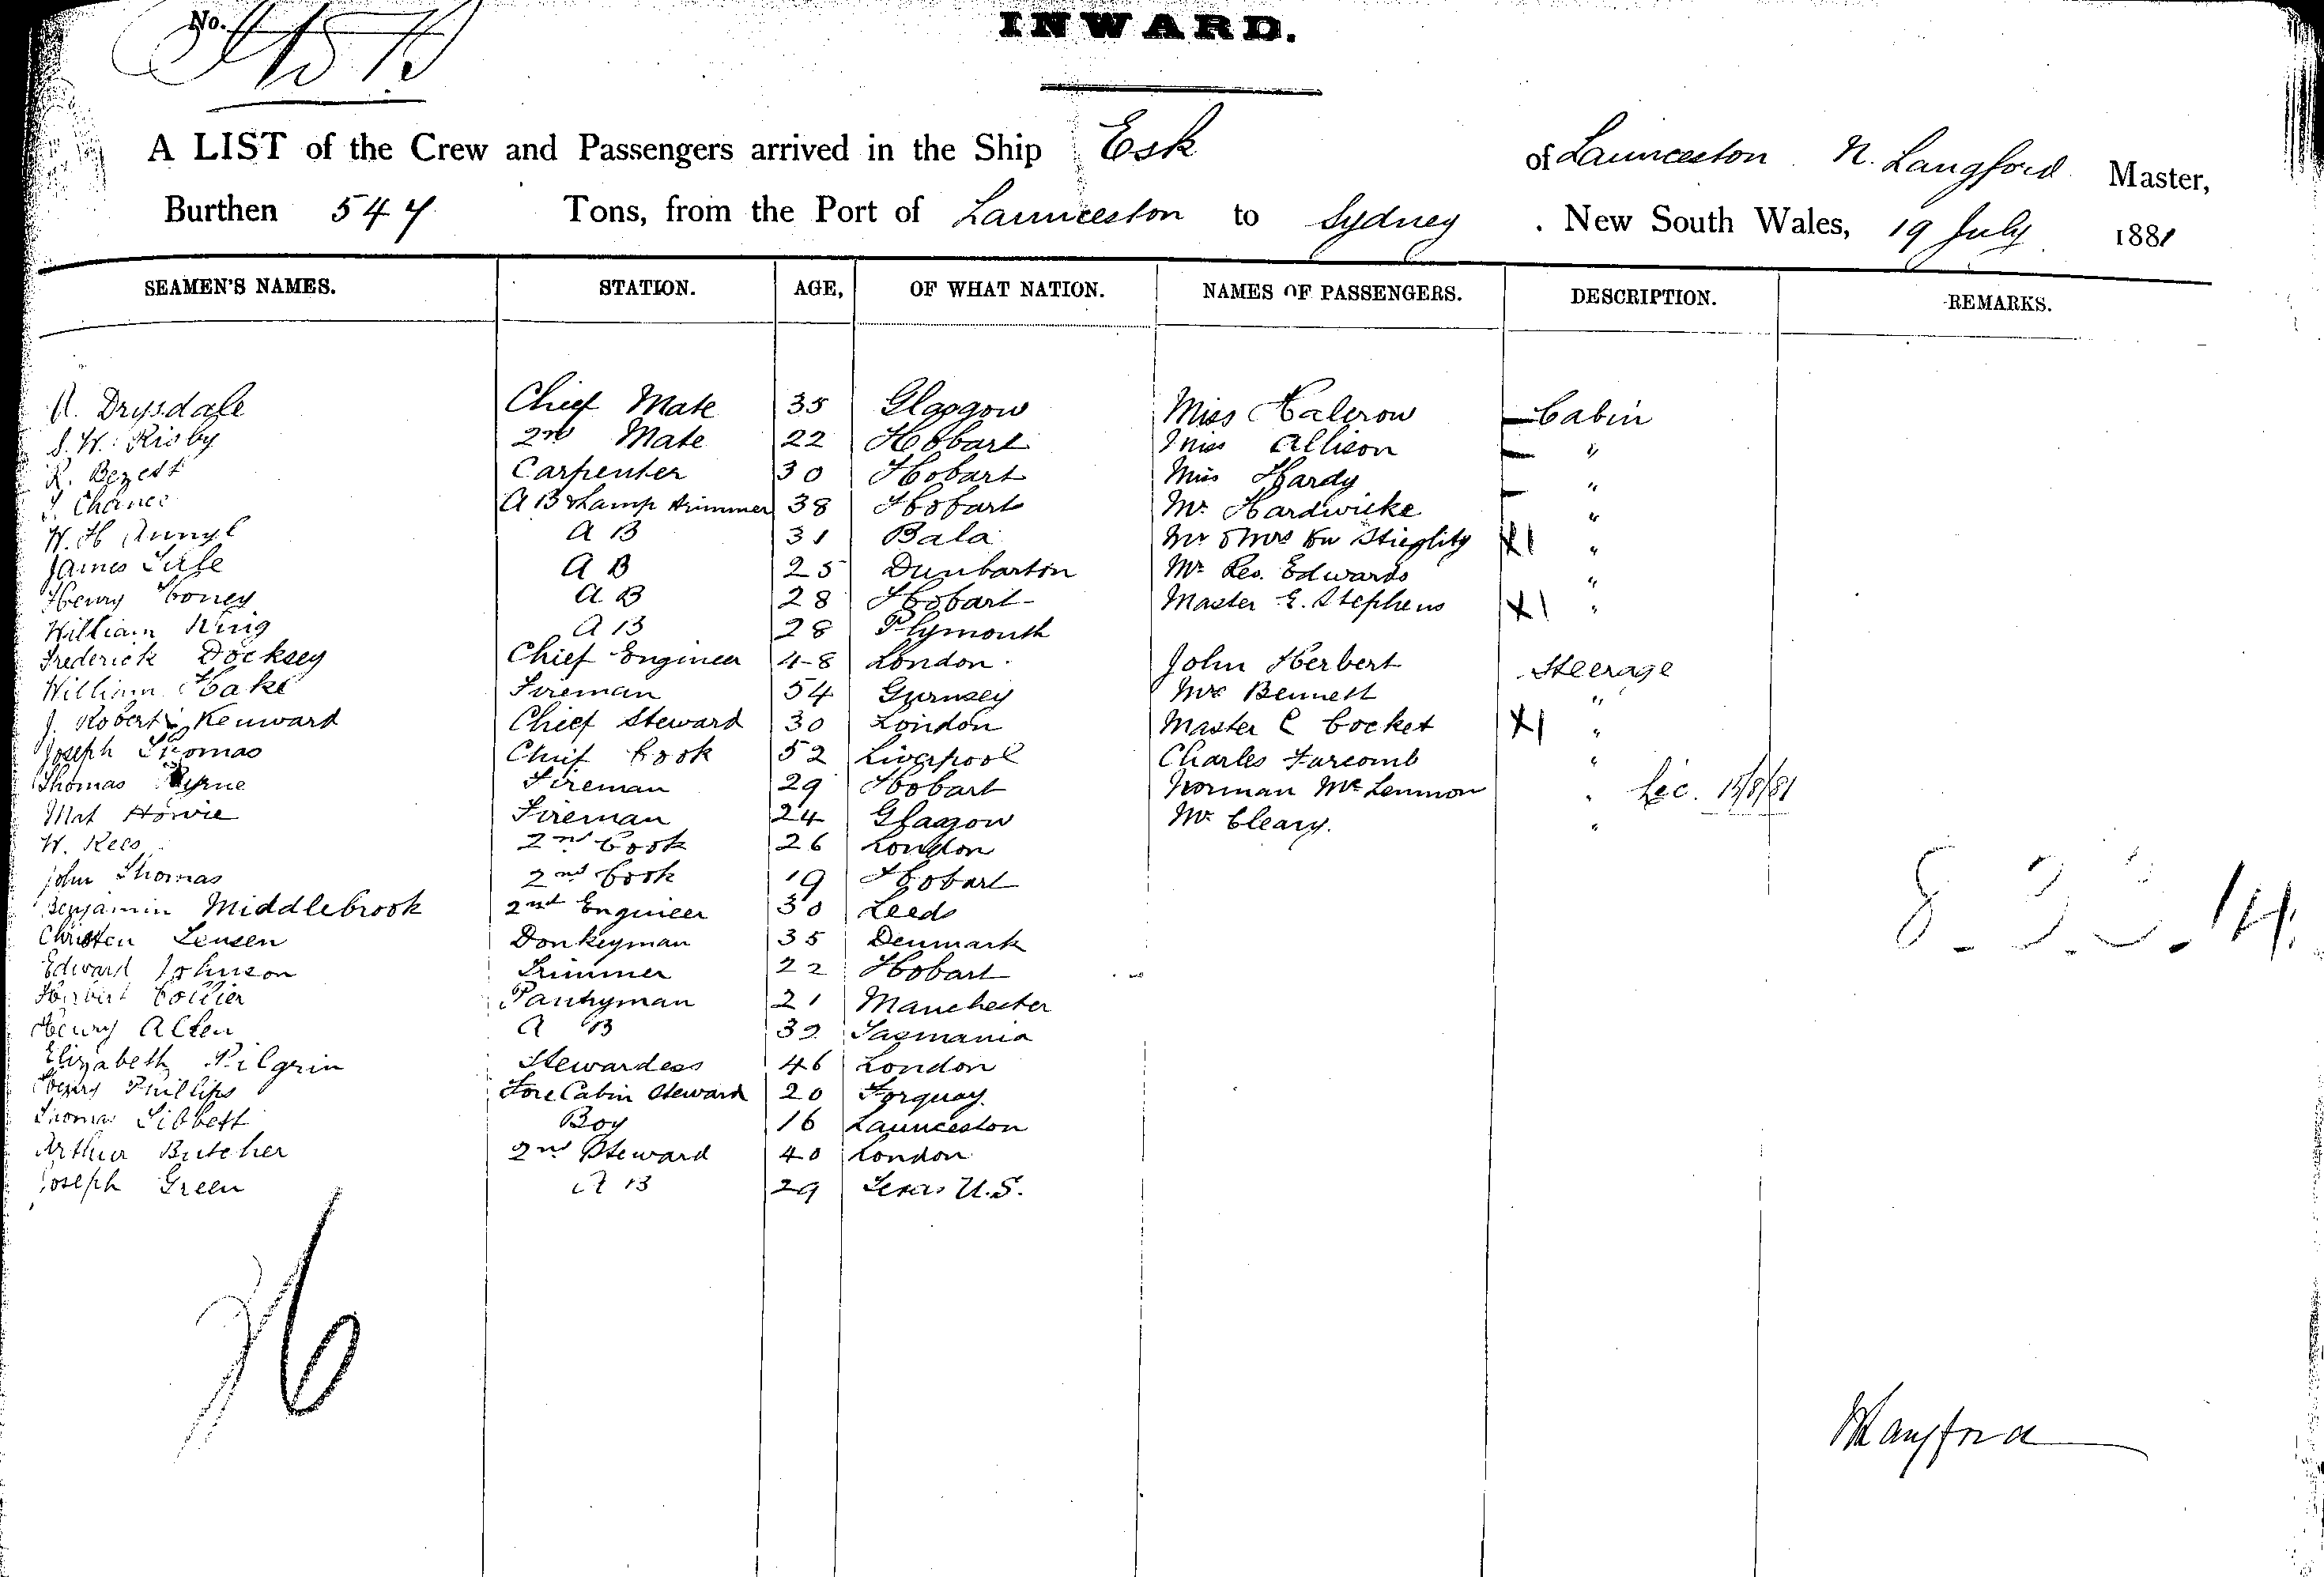 No.
INWARD.
A LIST of the Crew and Passengers arrived in the Ship Esk of Launceston N. Langford Master,
Burthen 547 Tons, from the Port of Launceston to Sydney . New South Wales, 19 July 1881
SEAMEN'S NAMES. STATION. AGE, OF WHAT NATION. NAMES OF PASSENGERS. DESCRIPTION. REMARKS.
Drysdale Chief Mate 35 Glasgow Miss Cabin
Risby 2nd Mate 22 Hobart Miss Allison "
R. Bezett Carpenter 30 Hobart Miss Hardy "
Chance A B & Lamp trimmer 38 Hobart Mr Hardwicke "
W. H A B 31 Bala Mr & Mrs Von Stieglitz X1 "
James A B 25 Dunbarton Mr Edwards "
Henry Coney A B 28 Hobart Master E. Stephens X1 "
William King A B 28 Plymouth
Frederick Docksey Chief Engineer 48 London John Herbert Steerage
William Hake Fireman 54 Gurnsey Bennett "
J. Robert Kenward Chief Steward 30 London Master C Cocket X1 "
Joseph Thomas Chief Cook 52 Liverpool Charles Farcomb "
Thomas Fireman 29 Hobart Norman McLennon " 
Mat Howie Fireman 24 Glasgow Mr Cleary. "
W. Rees 2nd Cook 26 London
John Thomas 2nd Cook 19 Hobart
Benjamin Middlebrook 2nd Engineer 30 Leeds
Christen Jensen Donkeyman 35 Denmark
Edward Johnson Trimmer 22 Hobart
Herbert Collier Pantryman 21 Manchester
Henry Allen A B 32 Tasmania
Elizabeth Pilgrim Stewardess 46 London
Henry Phillips Fore Cabin Steward 20 Torquay.
Thomas Tibbett Boy 16 Launceston
Arthur Butcher 2nd Steward 40 London
Joseph Green A B 29 Texas U.S.
26
NLangford